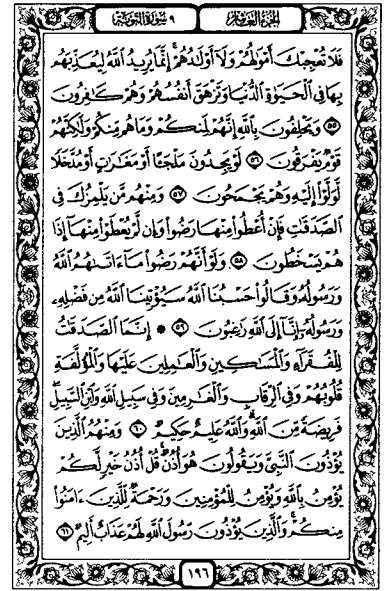 الجزء العاشر
٩ سورة التوبة
فَلَا تُعْجِبْكَ أَمْوَٰلُهُمْ وَلَآ أَوْلَٰدُهُمْ ۚ إِنَّمَا يُرِيدُ ٱللَّهُ لِيُعَذِّبَهُم
بِهَا فِى ٱلْحَيَوٰةِ ٱلدُّنْيَا وَتَزْهَقَ أَنفُسُهُمْ وَهُمْ كَٰفِرُونَ
٥٥ وَيَحْلِفُونَ بِٱللَّهِ إِنَّهُمْ لَمِنكُمْ وَمَا هُم مِّنكُمْ وَلَٰكِنَّهُمْ
قَوْمٌ يَفْرَقُونَ ٥٦ لَوْ يَجِدُونَ مَلْجَـًٔا أَوْ مَغَٰرَٰتٍ أَوْ مُدَّخَلًا
لَّوَلَّوْا۟ إِلَيْهِ وَهُمْ يَجْمَحُونَ ٥٧ وَمِنْهُم مَّن يَلْمِزُكَ فِى
ٱلصَّدَقَٰتِ فَإِنْ أُعْطُوا۟ مِنْهَا رَضُوا۟ وَإِن لَّمْ يُعْطَوْا۟ مِنْهَآ إِذَا
هُمْ يَسْخَطُونَ ٥٨ وَلَوْ أَنَّهُمْ رَضُوا۟ مَآ ءَاتَىٰهُمُ ٱللَّهُ
وَرَسُولُهُۥ وَقَالُوا۟ حَسْبُنَا ٱللَّهُ سَيُؤْتِينَا ٱللَّهُ مِن فَضْلِهِۦ
وَرَسُولُهُۥٓ إِنَّآ إِلَى ٱللَّهِ رَٰغِبُونَ ٥٩ * إِنَّمَا ٱلصَّدَقَٰتُ
لِلْفُقَرَآءِ وَٱلْمَسَٰكِينِ وَٱلْعَٰمِلِينَ عَلَيْهَا وَٱلْمُؤَلَّفَةِ
قُلُوبُهُمْ وَفِى ٱلرِّقَابِ وَٱلْغَٰرِمِينَ وَفِى سَبِيلِ ٱللَّهِ وَٱبْنِ ٱلسَّبِيلِ ۖ
فَرِيضَةً مِّنَ ٱللَّهِ ۗ وَٱللَّهُ عَلِيمٌ حَكِيمٌ ٦٠ وَمِنْهُمُ ٱلَّذِينَ
يُؤْذُونَ ٱلنَّبِىَّ وَيَقُولُونَ هُوَ أُذُنٌ ۚ قُلْ أُذُنُ خَيْرٍ لَّكُمْ
يُؤْمِنُ بِٱللَّهِ وَيُؤْمِنُ لِلْمُؤْمِنِينَ وَرَحْمَةٌ لِّلَّذِينَ ءَامَنُوا۟
مِنكُمْ ۚ وَٱلَّذِينَ يُؤْذُونَ رَسُولَ ٱللَّهِ لَهُمْ عَذَابٌ أَلِيمٌ ٦١
١٩٦